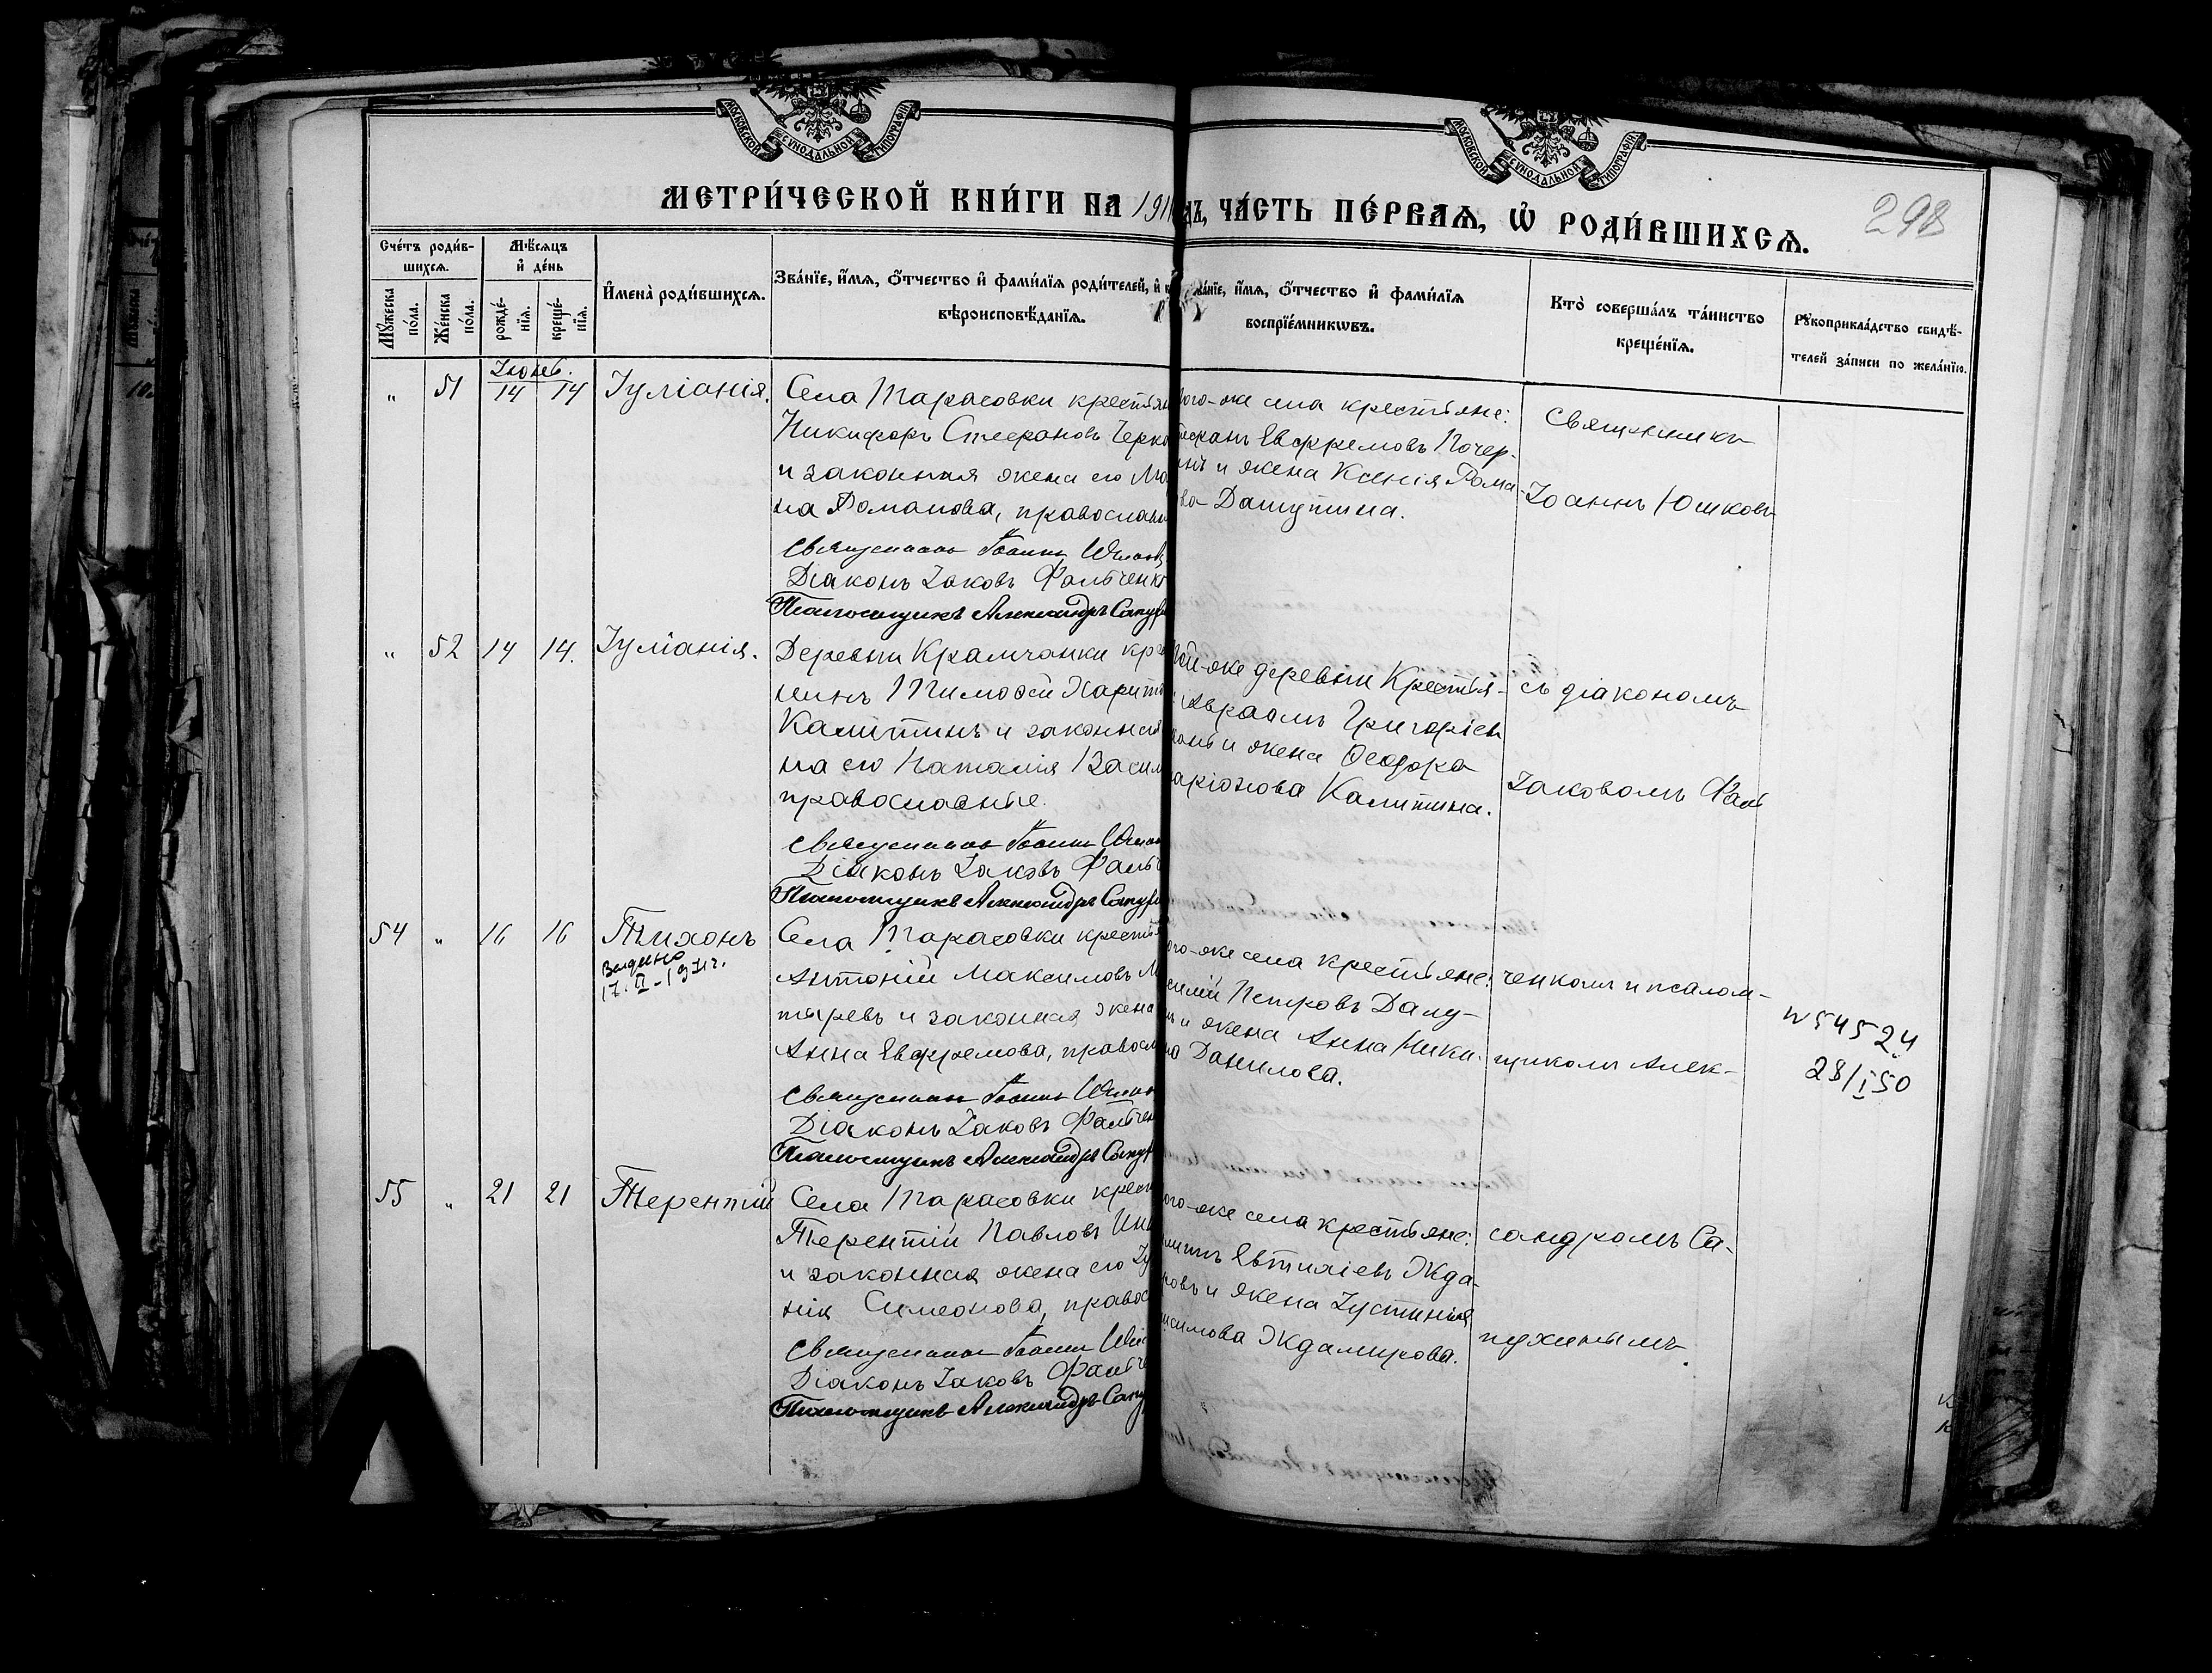 МОСКОВСКОЙ СУНОДАЛЬНОЙ ТИПОГРАФІИ
МОСКОВСКОЙ СУНОДАЛЬНОЙ ТИПОГРАФІИ
МЕТРИ́ЧЕСКОЙ КНИ́ГИ НА 191 дъ, ЧА́СТЬ ПЕ́РВАЯ, Ѡ РОДИ́ВШИХСЯ.
298
Сче́тъ роди́в-
шихся.
Мѣ́сяцъ
и де́нь
Му́жеска
по́ла.
Же́нска
по́ла.
рожде́-
нія.
креще́-
нія.
Имена̀ роди́вшихся.
Зва́ніе, и́мя, о́тчество и фами́лія роди́телей, и к
вѣроисповѣ́данія.
ва́ніе, и́мя, о́тчество и фами́лія
воспріе́мниковъ.
Кто̀ соверша́лъ та́инство
креще́нія.
Рукоприкла́дство свидѣ́-
телей за́писи по жела́нію.
Іюнь.
" 51 14 14 Іуліанія.
Села Тарасовки крестьян
Никифоръ Стефановъ Черка
и законная жена его Ма
на Романова, православн
Священникъ Іоаннъ Юшковъ
Діаконъ Іаковъ Фальченко
Псаломщикъ Александръ Сапух
ого-же села крестьяне:
тефанъ Евфремовъ Почер-
инъ и жена Ксенія Рома-
ва Дашутина.
Священникъ
Іоаннъ Юшковъ
" 52 14 14. Іуліанія.
Деревни Крамчанки кре
нинъ Тимофей Харито
Калитинъ и законная
на его Наталія Васил
православные.
Священникъ Іоаннъ Юшко
Діаконъ Іаковъ Фальч
Псаломщикъ Александръ Сапух
той-же деревни Крестья-
Авраамъ Григорьев
и жена Феодора
аріонова Калитина.
съ діакономъ
Іаковомъ Фаль
54 " 16 16 Тихонъ
Выдано
17.II-1971г.
Села Тарасовки кресть
Антоній Максимовъ М
тыревъ и законная жена
Анна Евфремова, правосл
Священникъ Іоаннъ Юшко
Діаконъ Іаковъ Фальчен
Псаломщикъ Александръ Сапух
ого-же села крестьяне:
силій Петровъ Дани-
ъ и жена Анна Ники-
на Данилова.
ченкомъ и псалом-
щикомъ Алек-
N 54524
28/I 50
55 " 21 21 Терентій
Села Тарасовки крест
Терентій Павловъ
и законная жена его Іу
нія Симеонова, правос
Священникъ Іоаннъ Юшк
Діаконъ Іаковъ Фальче
Псаломщикъ Александръ Сапу
ого-же села крестьяне:
Евтихіевъ Жда-
ровъ и жена Іустинія
ксимова Ждамирова.
сандромъ Са-
пухинымъ.